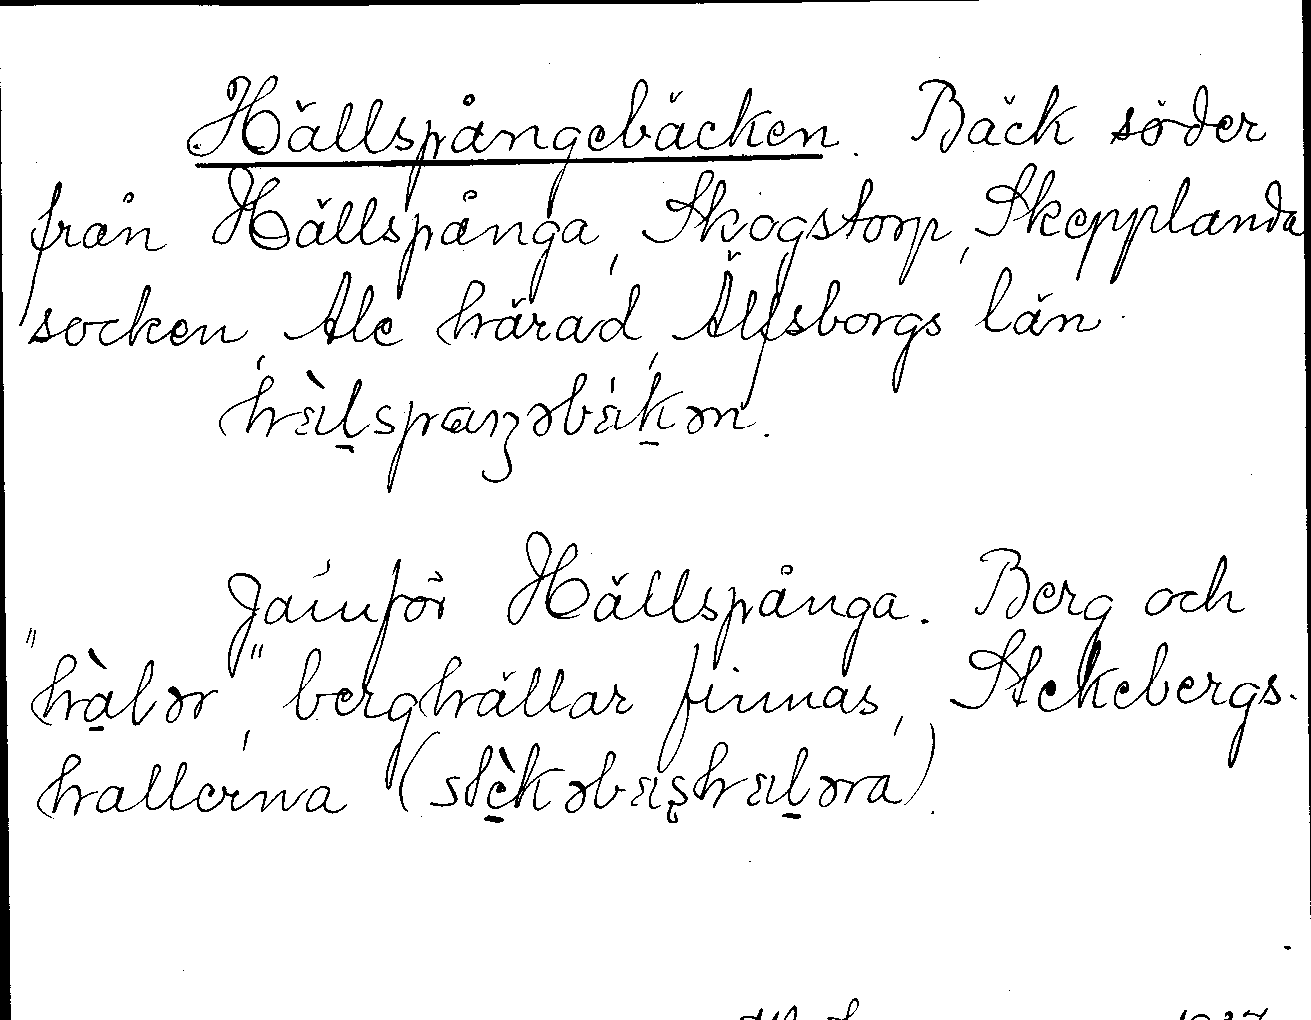 Hällspångebäcken. Bäck söder
från Hällspånga, Skogstorp, Skepplanda
socken, Ale härad, Älfsborgs län.
hɛ̀l̠spɑŋəbɛ́k̠ən.
Jämför Hällspånga. Berg och
"hàlər", berghällar finnas, Stekebergs-
hallerna (stèkəbɛʂhɛl̠əra).